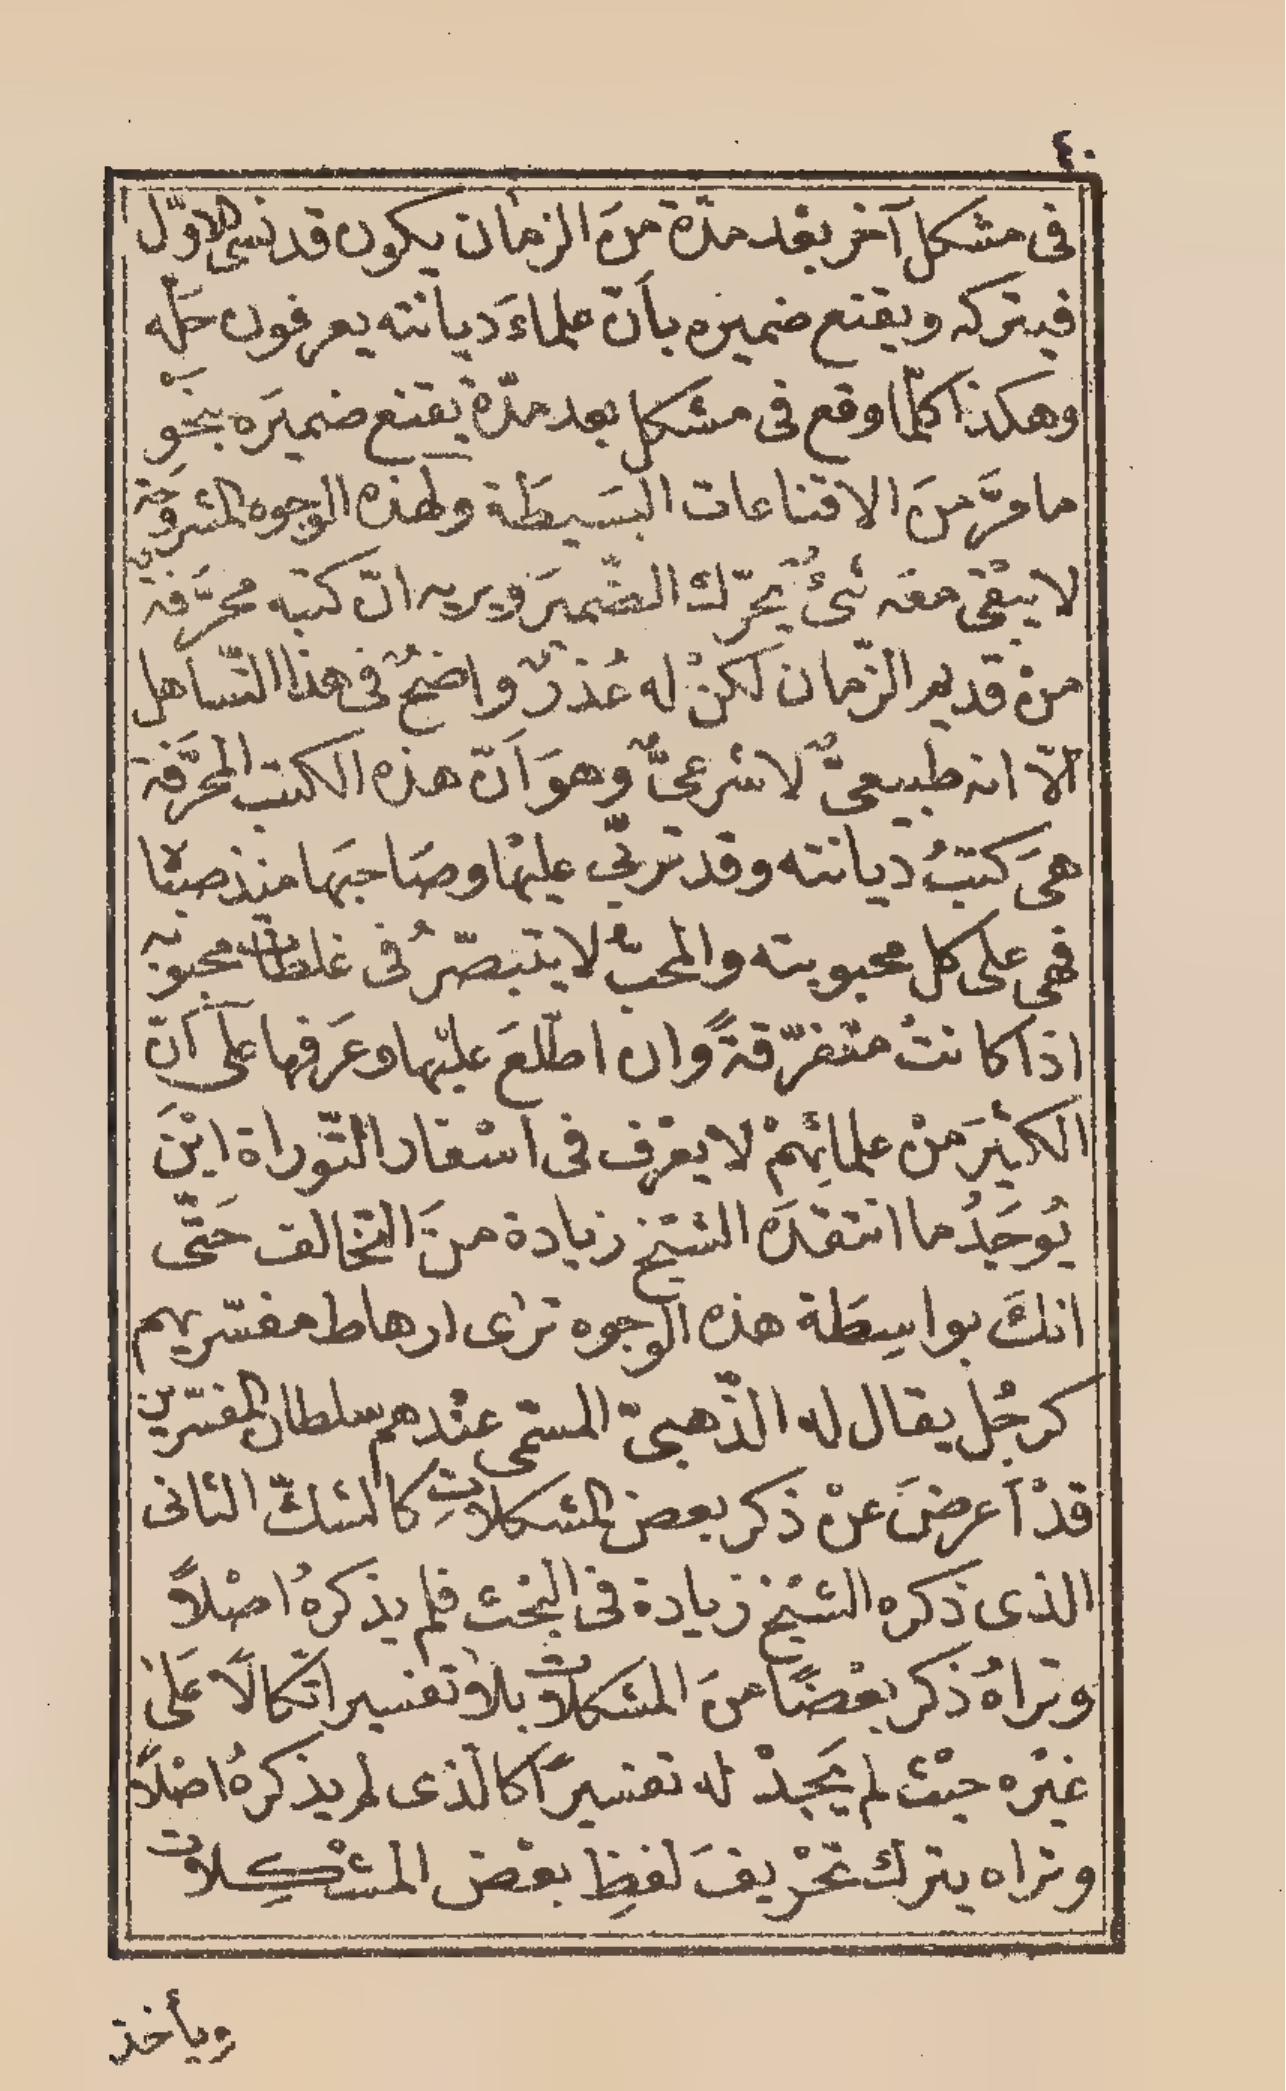 ٤٠
فى مشكل آخر بعْد مدّة منَ الزمان يكون قد نسى الاوّل
فيتركه ويقنع ضميره بأنّ علماءَ ديانته يعرفون حَلّه
وهكذا كلّما وقع فى مشكل بعد مدّة يقنع ضميرَه بنَحْوِ
ما مرَّ منَ الاقناعات البسَيطَة ولهذه الوجوه المشروحَة
لا يبْقى معَه شئٌ يُحَرّك الضّميَر ويريه انّ كتبه محرَّفةٌ
منْ قديم الزّمان لكنْ له عُذرٌ واضحٌ فى هذا التّساهل
الّا انه طبيعىٌّ لا شرعىٌّ وهوَ اَنّ هذه الكتب المحرَّفة
هىَ كتبُ ديانته وقد تربّى عليْها وصَاحبَها منذ صباه
فهى على كل محبوبته والمحبّ لا يتبصّرُ فى غلطات محبوبته
اذا كانتْ متفرّقةً وان اطّلعَ عليْها وعَرَفها على اَنّ
الكثيَر منْ علمائِهمْ لا يعْرف فى اسْفار التّوراة ايْنَ
يُوجَدُ ما انتقدَه الشيْخ زيادة منَ التخالف حَتّى
انكَ بواسِطَة هذه الوجوه ترٰى ارهاط مفسّريهم
كرجُل يقال له الذّهبىّ المسمّى عنْدهم سلطان المفسّرين
قدْ اَعرضَ عنْ ذكر بعض المشكلاتِ كالشكّ الثانى
الذى ذكره الشيْخ زيادة فى البحْث فلم يذكرهُ اصْلاً
وتراهُ ذكر بعْضًا منَ المشكلات بلا تفسير اتّكالًا عَلىٰ
غيْره حيْث لم يَجدْ له تفسيرًا كالّذى لم يذكرهُ اصْلاً
وتراه يترك تحْريفَ لفظِ بعْض المشْكِلات
ويأخذ